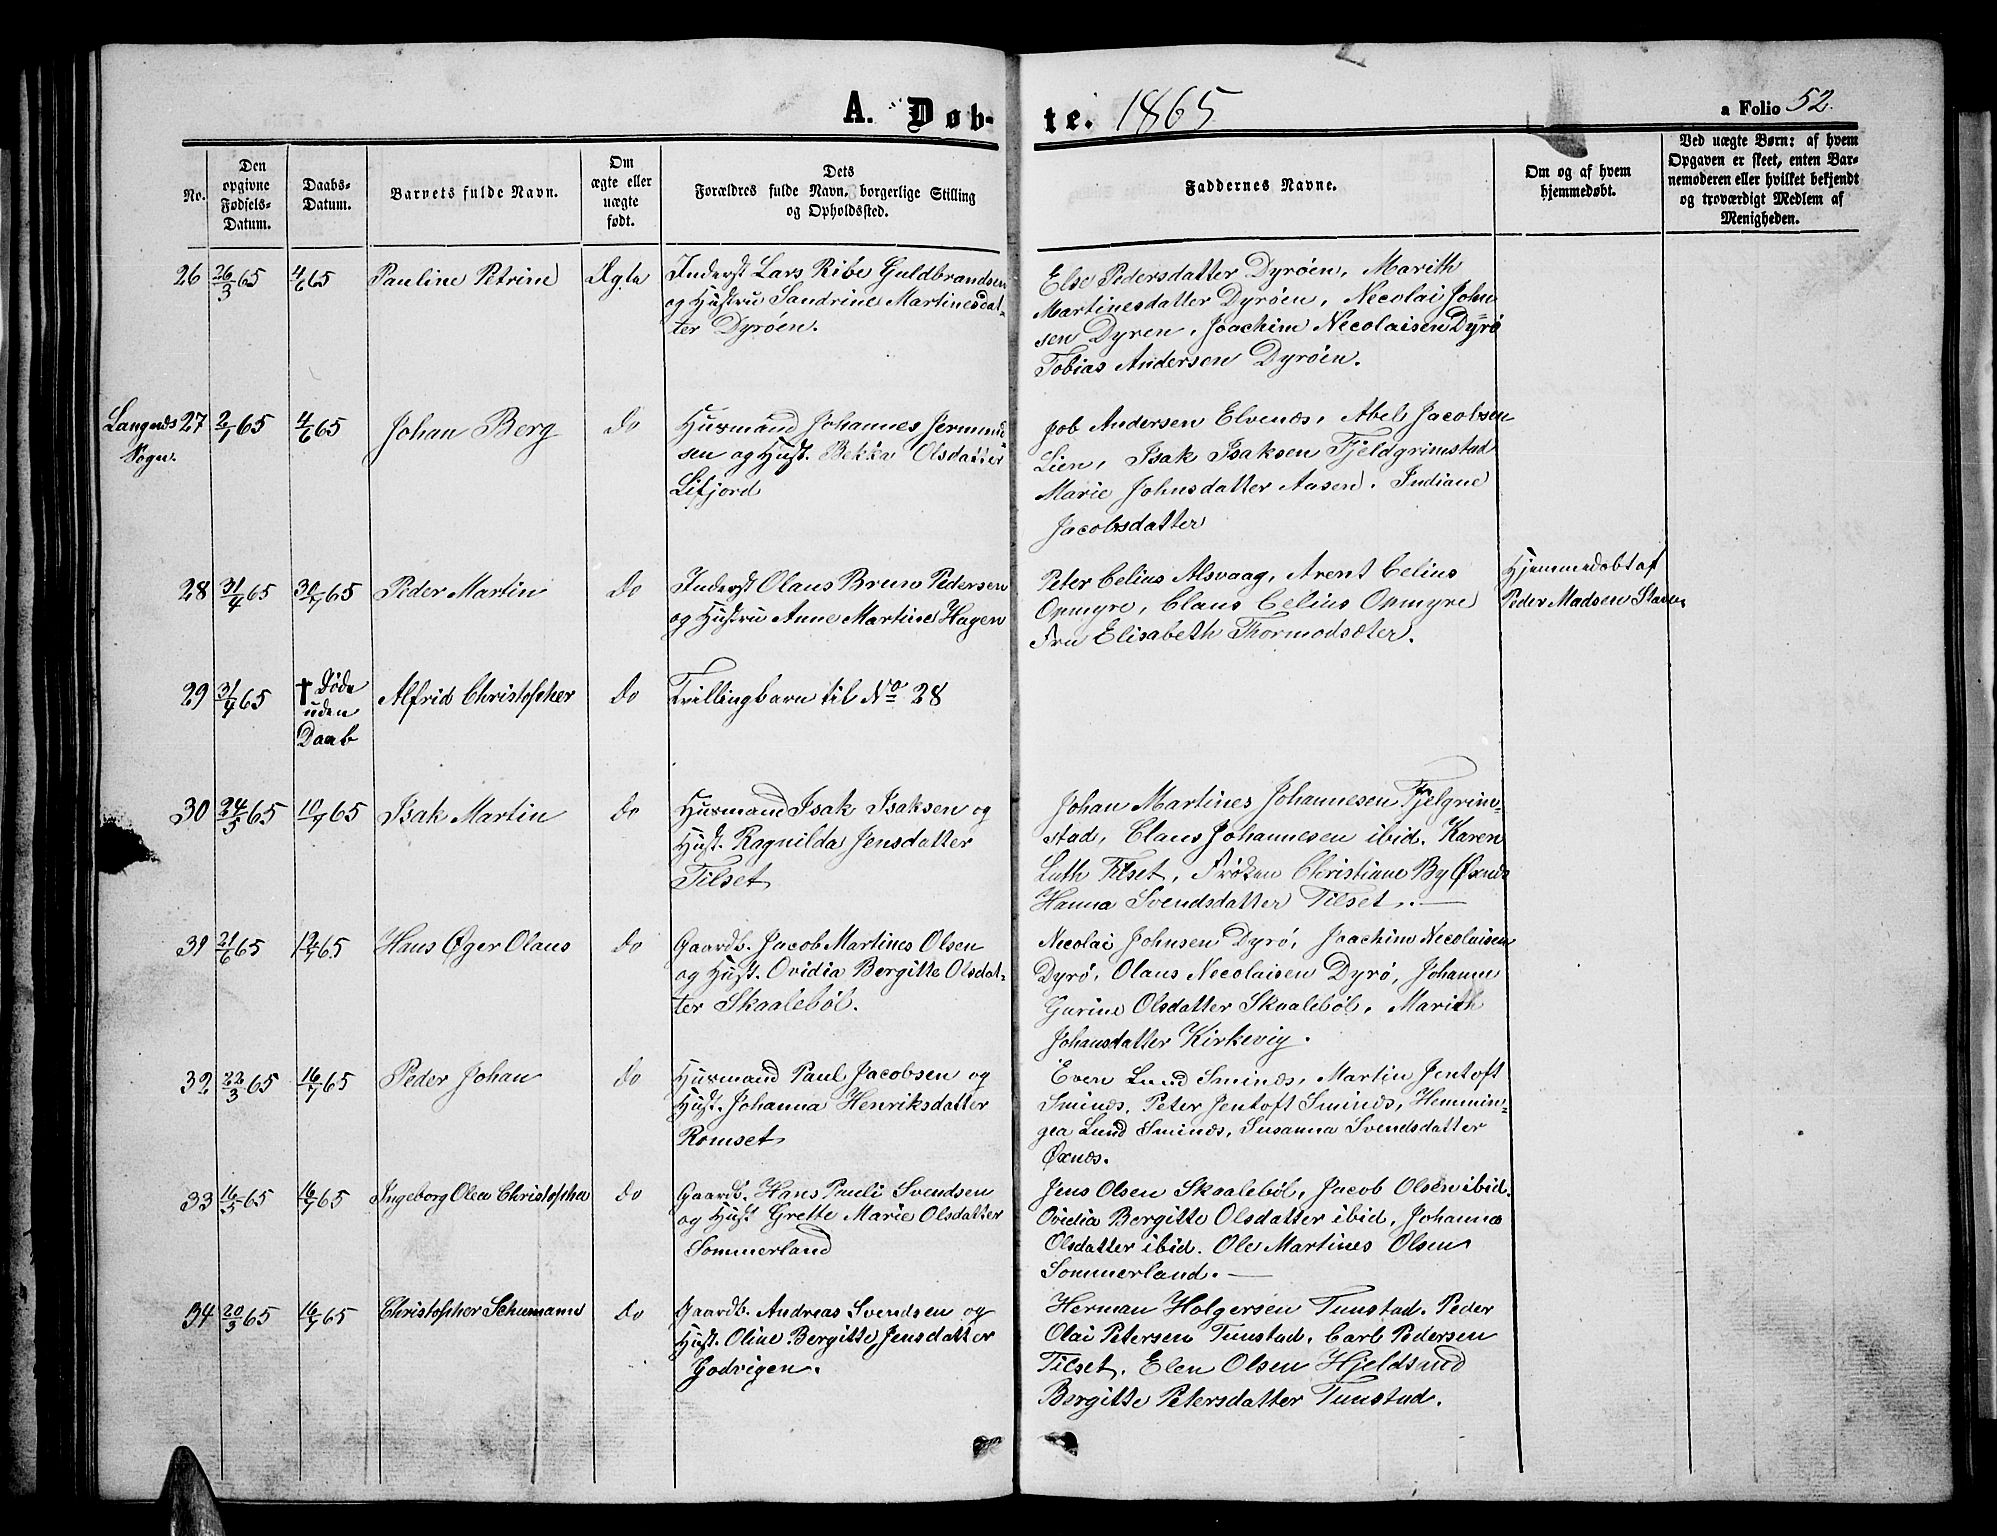 A. Døb-
te. 1865
a Folio 52.
No.
Den
opgivne
Fødsels-
Datum.
Daabs-
Datum.
Barnets fulde Navn.
Om
ægte eller
uægte
født.
Dets
Forældres fulde Navn, borgerlige Stilling
og Opholdssted.
Faddernes Navne.
Om og af hvem
hjemmedøbt.
Ved uægte Børn: af hvem
Opgaven er skeet, enten Bar-
nemoderen eller hvilket bekjendt
og troværdigt Medlem af
Menigheden.
26 26/3 65 4/6 65 Pauline Petrine Ægte
Inderst Lars Ribe Guldbrandsen
og Hustru Sandrine Martinesdat-
ter Dyrøen.
Else Pedersdatter Dyrøen, Marith
Martinesdatter Dyrøen, Necolai John-
sen Dyren, Joachim Necolaisen Dyrø
Tobias Andersen Dyrøen.
Langnæs
Sogn.
27 2/1 65 4/6 65 Johan Berg do
Husmand Johannes Jermund-
sen og Hust. Bekka Olsdatter
Lifjord
Job Andersen Elvenæs, Abel Jacobsen
Lien, Isak Isaksen Fjeldgrimstad
Marie Johnsdatter Aasen. Indiane
Jacobsdatter
28 31/4 65 30/7 65 Peder Martin do
Inderst Olaus Brun Pedersen
og Hustru Anne Martine Hagen
Peter Celius Alsvaag, Arent Celius
Opmyre, Claus Celius Opmyre
Fru Elisabeth Thormodsæter.
Hjemmedøbt af
Peder Madsen
29 31/4 65 † Døde
uden
Daab
Alfrid Christopher do
Tvillingbarn til No 28
30 24/5 65 10/7 65 Isak Martin do
Husmand Isak Isaksen og
Hust. Ragnilda Jensdatter
Tilset
Johan Martines Johannesen Fjelgrim-
stad, Claus Johannesen ibid. Karen
Luth Tilset, Frøken Christiane By Øxnæs
Hanna Svendsdatter Tilset.
31 21/6 65 12/7 65 Hans Øger Olaus do
Gaardb. Jacob Martines Olsen
og Hust. Ovidia Bergitte Olsdat-
ter Skaalebøl.
Necolai Johnsen Dyrø, Joachim Necolaisen
Dyrø, Olaus Necolaisen Dyrø, Johanne
Gurine Olsdatter Skaalebøl, Marith
Johansdatter Kirkevig.
32 22/3 65 16/7 65 Peder Johan do
Husmand Paul Jacobsen og
Hust. Johanna Henriksdatter
Romset
Even Lund Sminæs, Martin Jentoft
Sminæs, Peter Jentoft Sminæs, Hemmin-
gea Lund Sminæs, Susanna Svendsdatter
Øxnæs.
33 16/5 65 16/7 65 Ingeborg Olea Christopha do
Gaardb. Hans Pauli Svendsen
og Hust Grette Marie Olsdatter
Sommerland
Jens Olsen Skaalebøl, Jacob Olsen ibid.
Ovidia Bergitte Olsdatter ibid, Johanna
Olsdatter ibid. Ole Martines Olsen
Sommerland.
34 20/3 65 16/7 65 Christopher Schumann do
Gaardb. Andreas Svendsen og
Hust. Oline Bergitte Jensdatter
Godvigen.
Herman Holgersen Tunstad. Peder
Olai Petersen Tunstad, Carl Pedersen
Tilset, Elen Olsen Hjeldsund
Bergitte Petersdatter Tunstad.